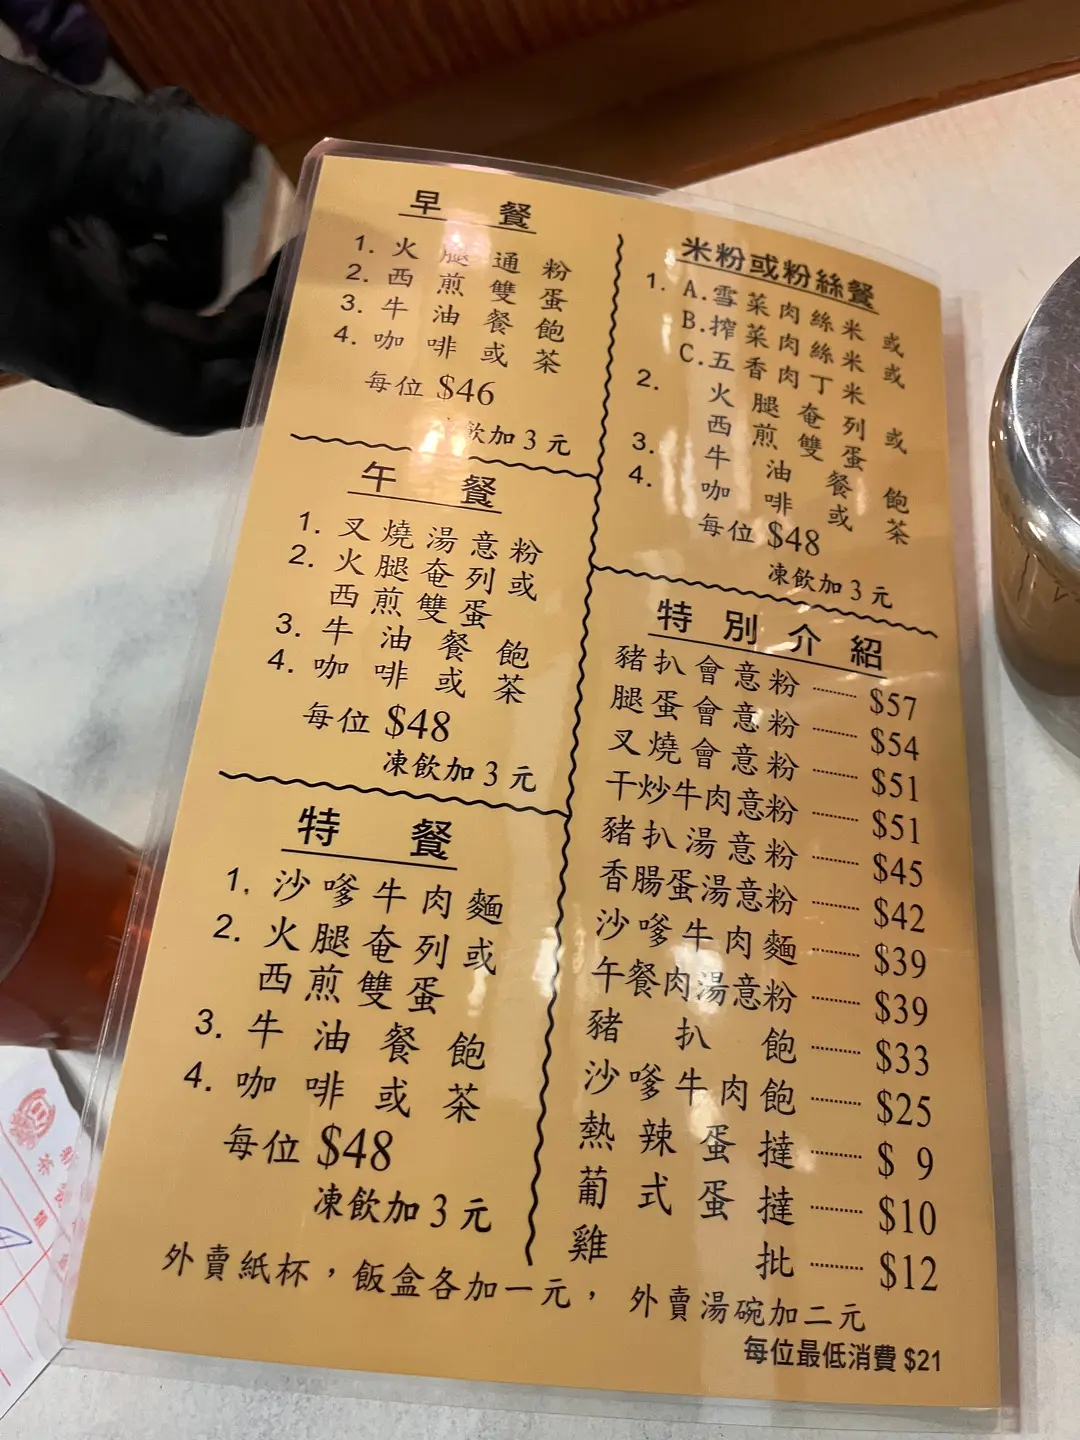 早餐
1. 火腿通粉
2. 西煎雙蛋
3. 牛油餐飽
4. 咖啡或茶
每位 $46
飲加3元
午餐
1. 叉燒湯意粉
2. 火腿奄列或
西煎雙蛋
3. 牛油餐飽
4. 咖啡或茶
每位 $48
凍飲加3元
特餐
1. 沙嗲牛肉麵
2. 火腿奄列或
西煎雙蛋
3. 牛油餐飽
4. 咖啡或茶
每位 $48
凍飲加3元
米粉或粉絲餐
1. A.雪菜肉絲米或
B.搾菜肉絲米或
C.五香肉丁米
2. 火腿奄列或
西煎雙蛋
3. 牛油餐飽
4. 咖啡或茶
每位 $48
凍飲加3元
特別介紹
豬扒會意粉 $57
腿蛋會意粉 $54
叉燒會意粉 $51
干炒牛肉意粉 $51
豬扒湯意粉 $45
香腸蛋湯意粉 $42
沙嗲牛肉麵 $39
午餐肉湯意粉 $39
豬扒飽 $33
沙嗲牛肉飽 $25
熱辣蛋撻 $ 9
葡式蛋撻 $10
雞批 $12
外賣紙杯，飯盒各加一元， 外賣湯碗加二元
每位最低消費 $21